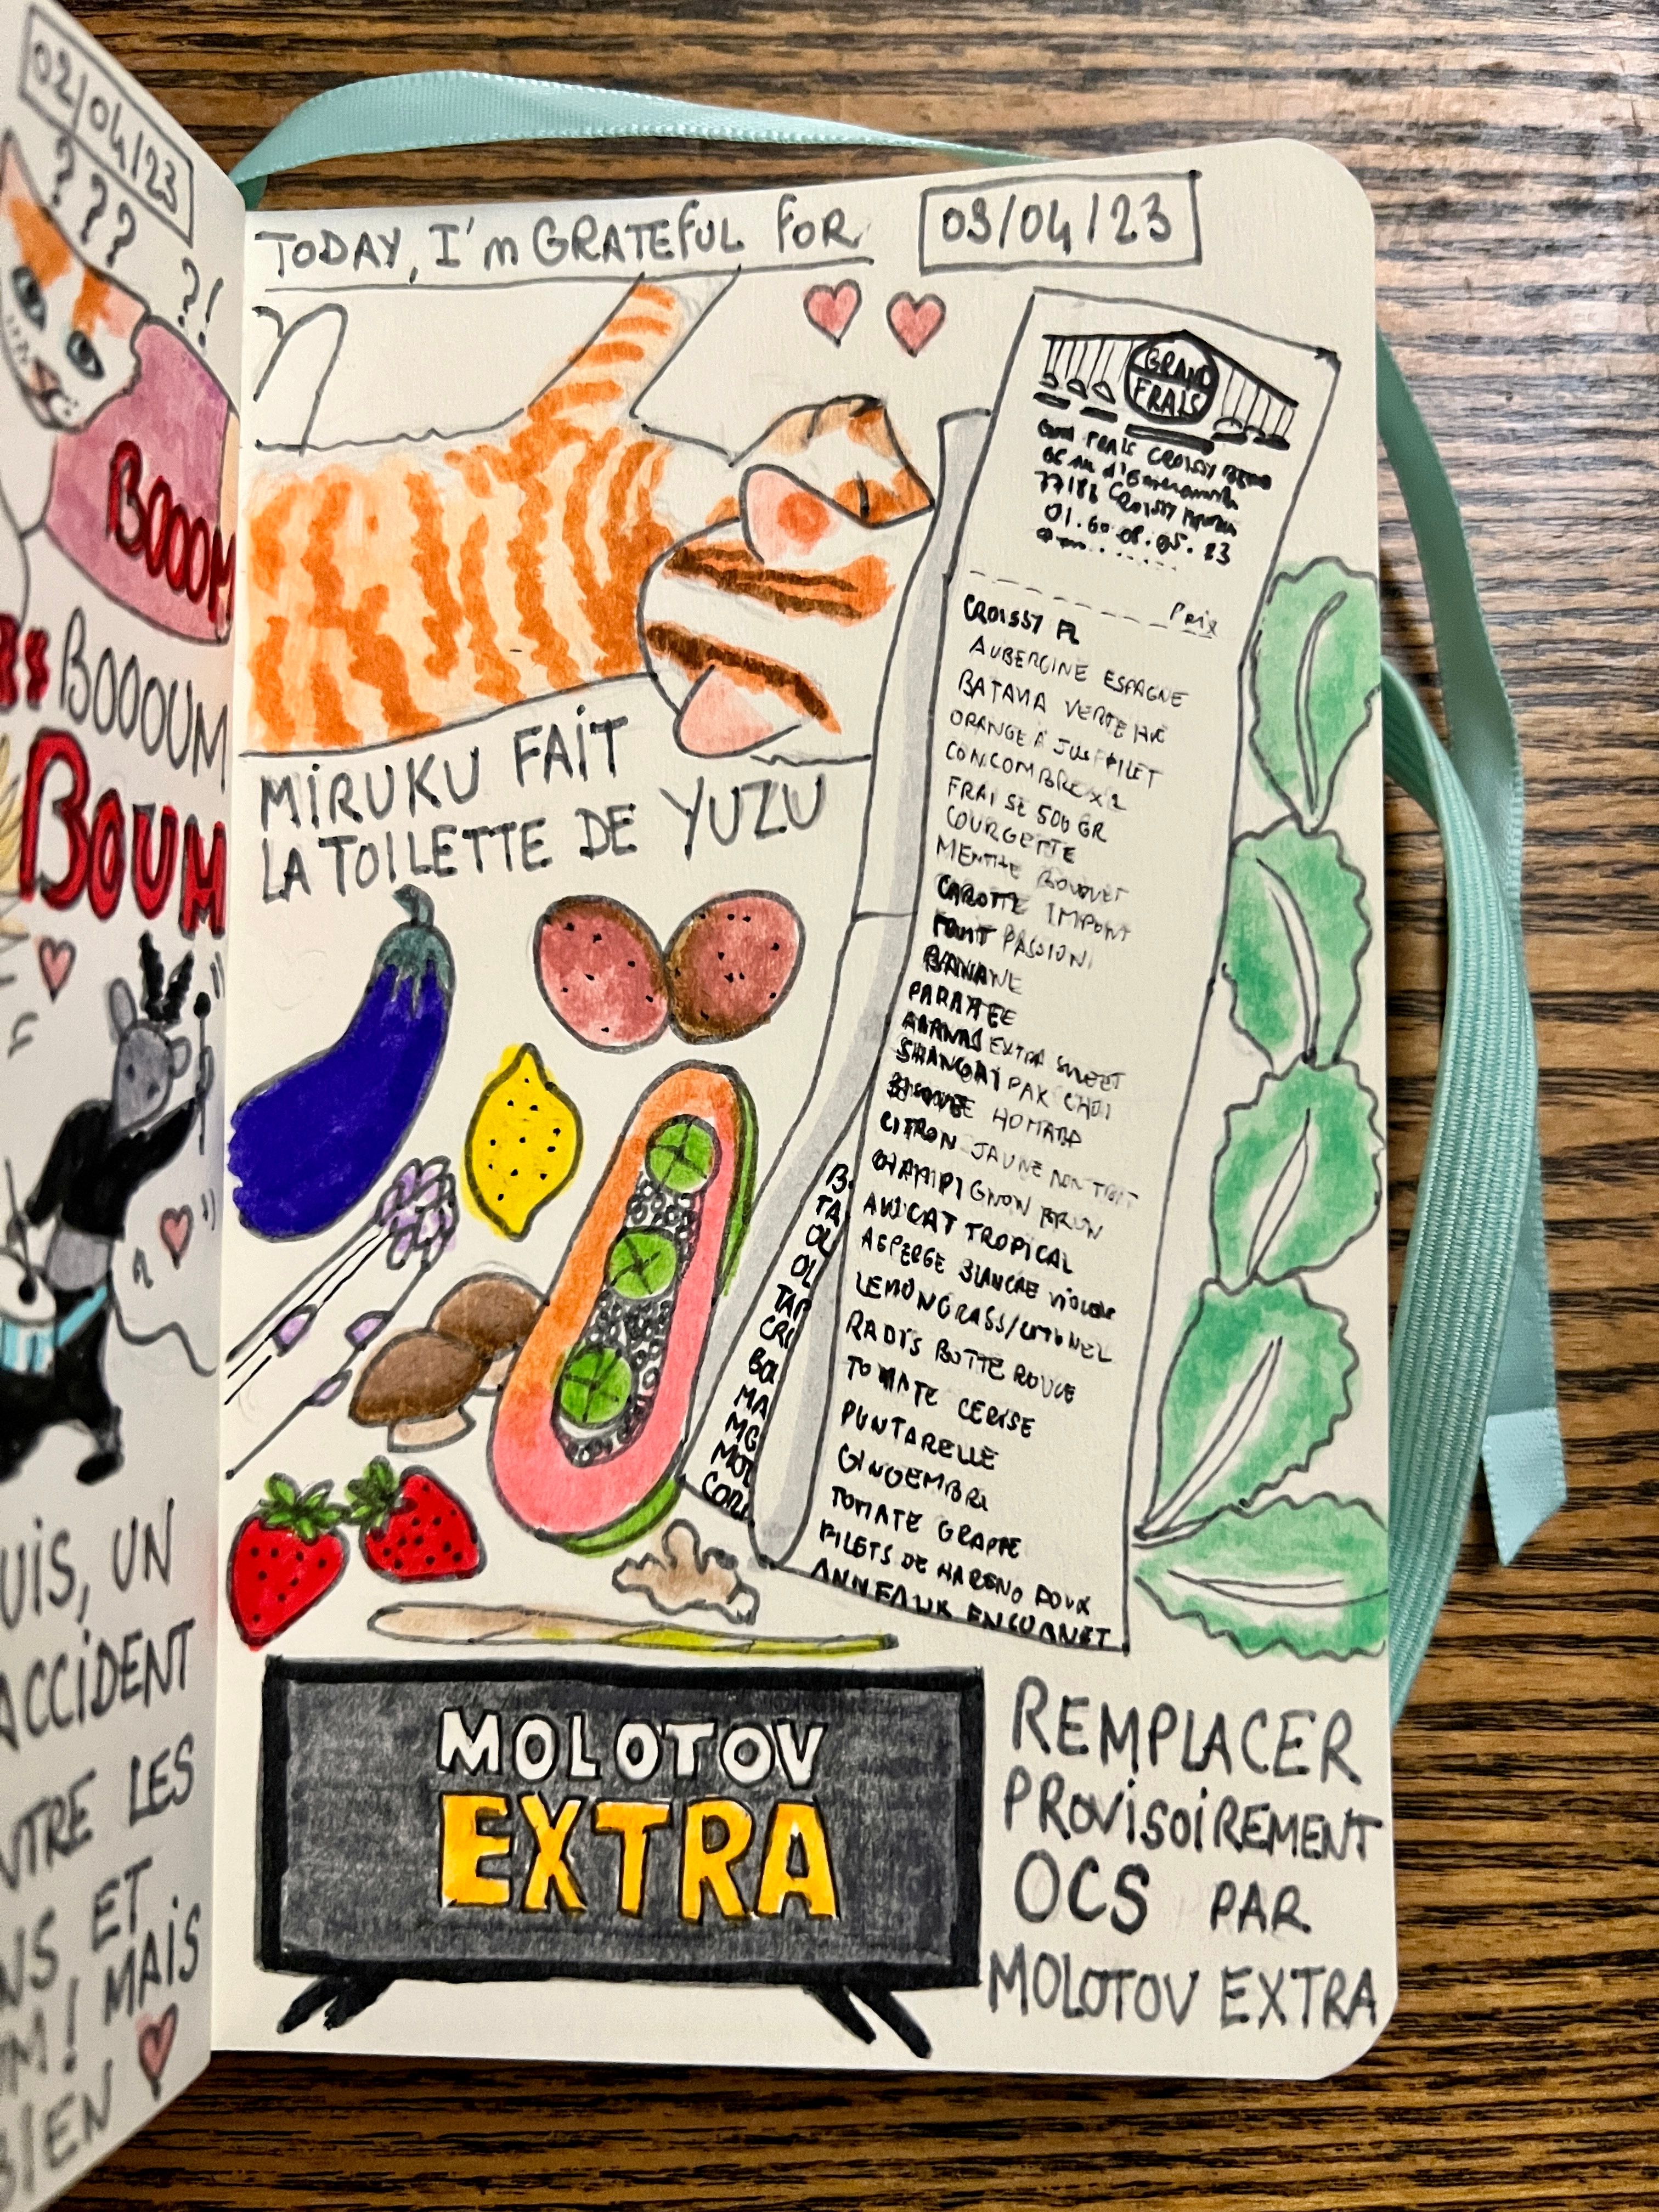 02/04/23
???
?!
BOOOM
BOOOUM
BOUM
UIS, UN
ACCIDENT
NTRE LES
NS ET
M! MAIS
BIEN
TODAY, I'm GRATEFUL FOR
03/04/23
GRAND
FRAIS
77183 CROISSY
Prix
CROISSY FL
AUBERGINE ESPAGNE
BATAVIA VERTE
ORANGE À JUS FILET
CONCOMBRE X2
FRAISE 500 GR
COURGETTE
MENTHE BOUQUET
CAROTTE IMPORT
FRUIT PASSION
BANANE
PARAYEE
ANANAS EXTRA SWEET
SHANGAI PAK CHOI
BISQUE HOMARD
CITRON JAUNE NON TRAIT
CHAMPIGNON BRUN
AVOCAT TROPICAL
ASPERGE BLANCHE VIOLETTE
LEMONGRASS/CITRONEL
RADIS BOTTE ROUGE
TOMATE CERISE
PUNTARELLE
GINGEMBRE
TOMATE GRAPPE
FILETS DE HARENG DOUX
ANNEAUX ENCORNET
B.
TA
OL
OL
TAR
CRE
BOU
MA
MG
MOU
CORN
MIRUKU FAIT
LA TOILETTE DE YUZU
MOLOTOV
EXTRA
REMPLACER
PROVISOIREMENT
OCS PAR
MOLOTOV EXTRA